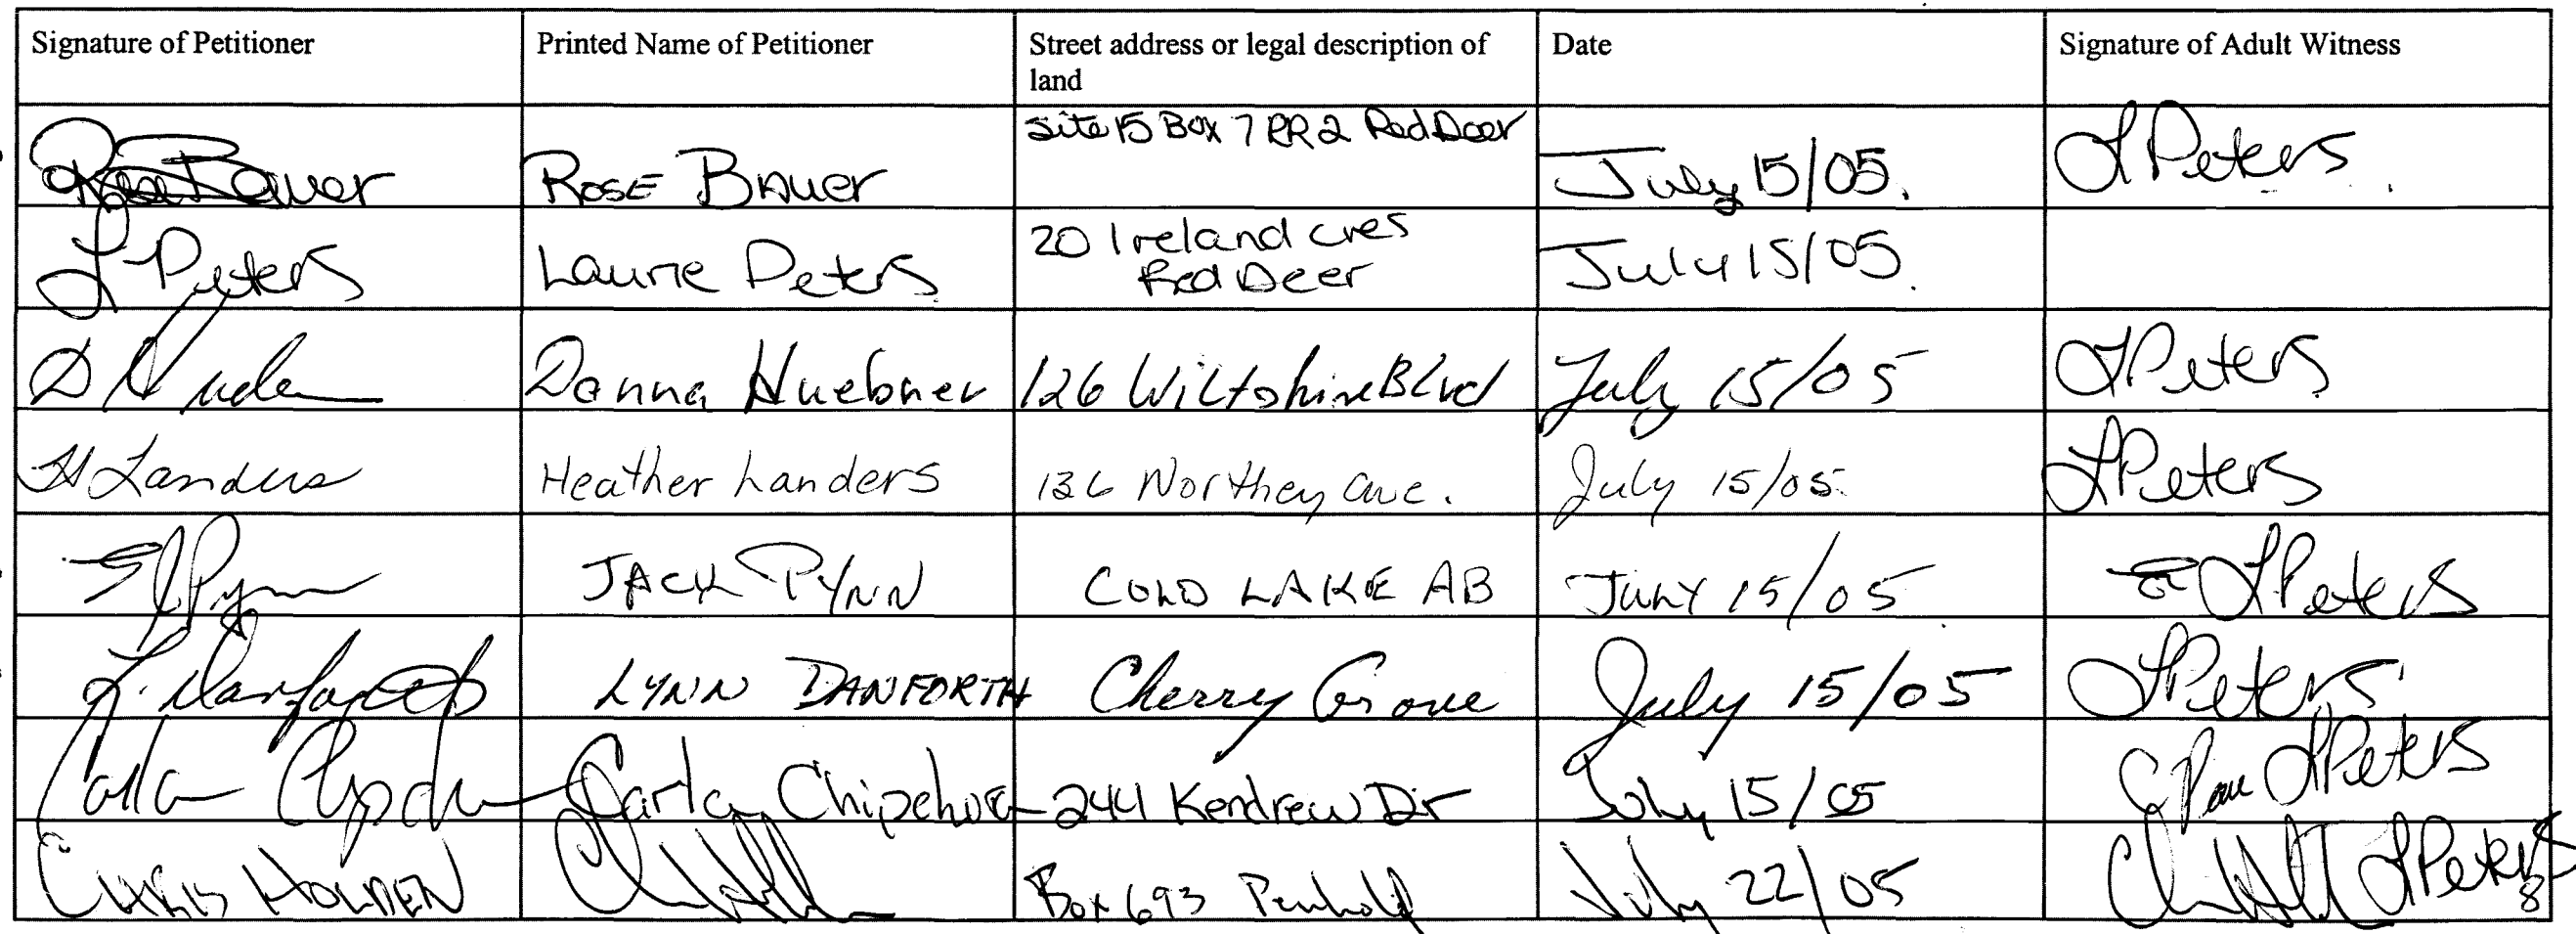 Signature of Petitioner Printed Name of Petitioner Street address or legal description of land Date Signature of Adult Witness
Rose Bauer ROSE BAUER Site 15 Box 7 RR2 Red Deer July 15/05. L Peters
L Peters Laurie Peters 20 Ireland Cres Red Deer July 15/05.
D Donna Huebner 126 Wiltshire Blvd July 15/05 L Peters
H Landers Heather Landers 136 Northey Ave. July 15/05. L Peters
EJ Pynn JACK PYNN COLD LAKE AB JULY 15/05 L Peters
L. Danforth LYNN DANFORTH Cherry Grove July 15/05 L Peters
Carla Carla 244 Kendrew Dr July 15/05 L Peters
CHRIS HOLDEN Box 693 Penhold July 22/05 L Peters
8